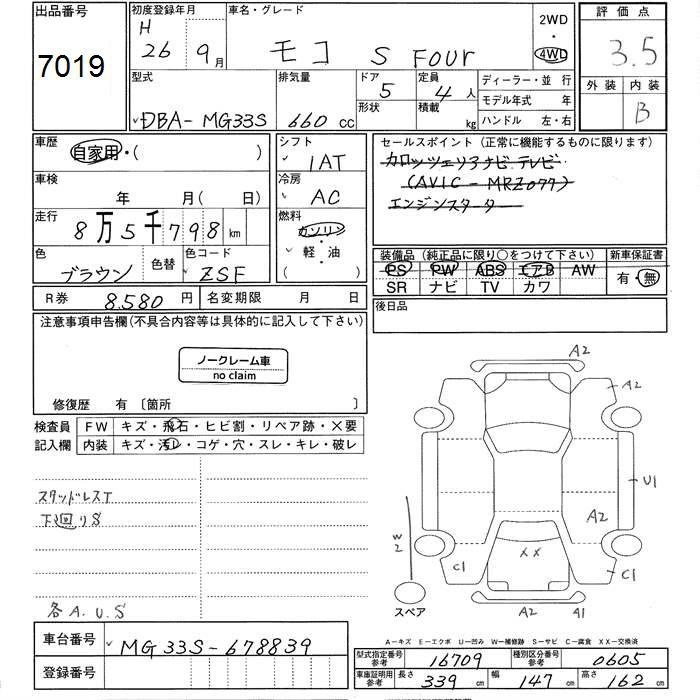 出品番号
7019
初度登録年月
H
26 9月
車名・グレード
モコ S FOUR
2WD
・
4WD
評価点
3.5
外装 内装
B
型式
DBA-MG33S
排気量
660 cc
ドア
5
形状
定員
4人
積載
kg
ディーラー・並 行
モデル年式 年
ハンドル 左・右
車歴
自家用・( )
シフト
IAT
セールスポイント (正常に機能するものに限ります)
カロッツェリアナビ テレビ
(AVIC-MRZ077)
エンジンスターター
車検
年 月( 日)
冷房
AC
走行
8万5千798 km
燃料
ガソリン
・軽・油
( )
色
ブラウン
色替
色コード
ZSF
装備品 (純正品に限り○をつけて下さい)
PS PW ABS エアB AW
SR ナビ TV カワ
新車保証書
有・無
R券 8.580 円
名変期限 月 日
後日品
注意事項申告欄(不具合内容等は具体的に記入して下さい)
ノークレーム車
no claim
修復歴 有 〔箇所 〕
検査員
記入欄
FW キズ・飛石・ヒビ割・リペア跡・X要
内装 キズ・汚レ・コゲ・穴・スレ・キレ・破レ
スタッドレスT
下廻りS
各A.U.S
A2
A2
U1
A2
W2
XX
C1
C1
スペア
A2 A1
A-キズ E-エクボ U-凹み W-補修跡 S-サビ C-腐食 XX-交換済
車台番号
MG33S-678839
登録番号
型式指定番号
参考
16709
種別区分番号
参考
0605
車庫証明用
参考
長さ 339 cm
幅 147 cm
高さ 162 cm